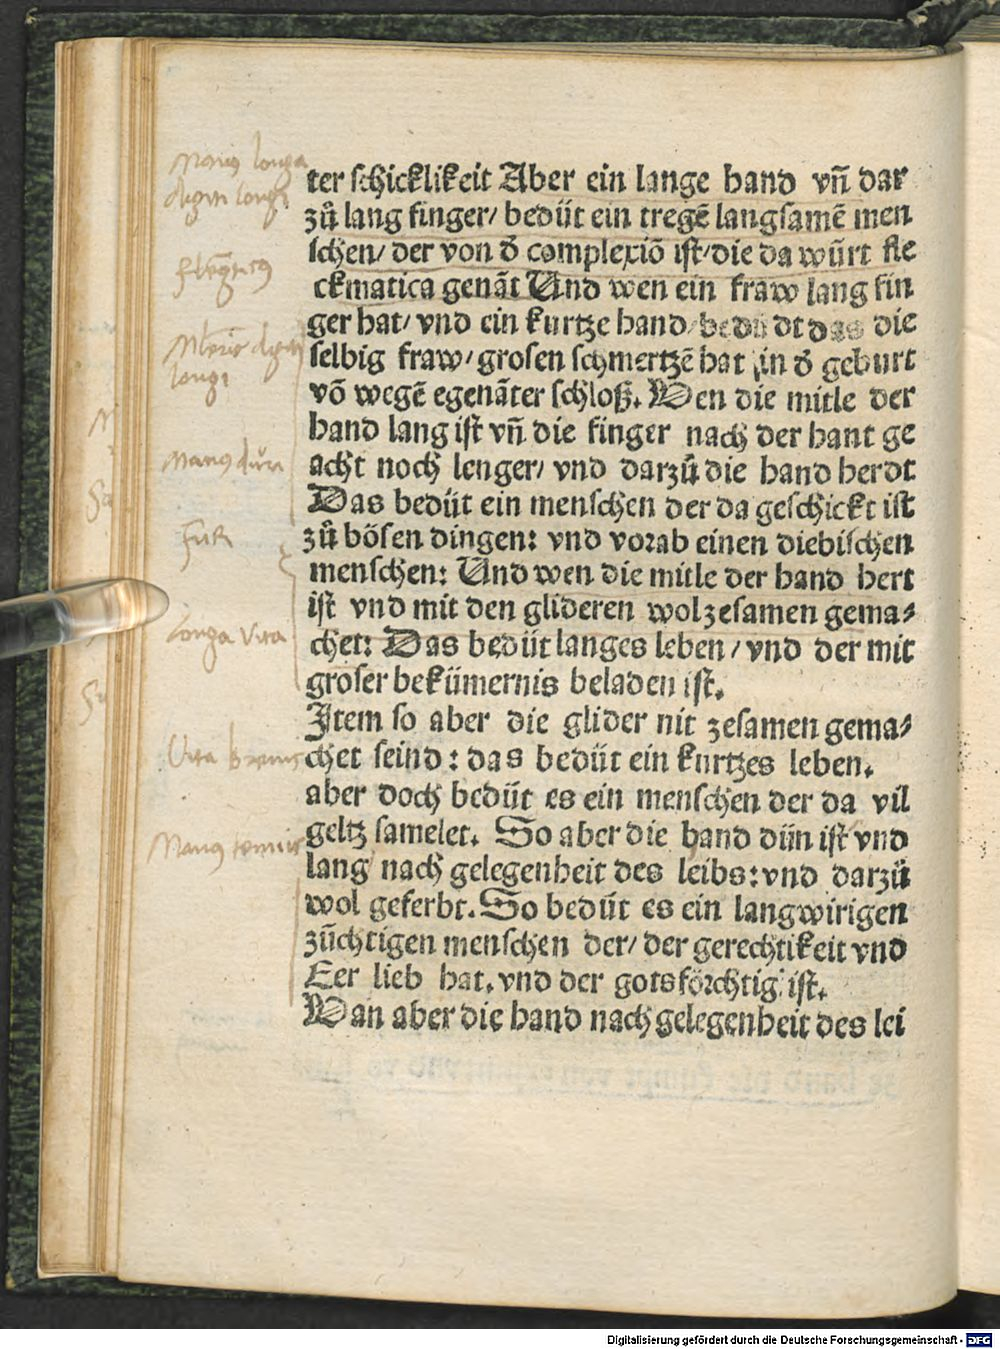 Manus longa
digiti longi
flegmaticus
Mulieris digiti
longi
Manus dura
Fur
Longa vita
Vita brevis
Manus tenuis
ter schicklikeit Aber ein lange hand vñ dar
zů lang finger/ bedüt ein tregē langsamē men
schen/ der von d̄ complexiō ist/ die da würt fle
ckmatica genāt Und wen ein fraw lang fin
ger hat/ vnd ein kurtze hand/ bedüdt das die
selbig fraw/ grosen schmertzē hat in d̄ geburt
vō wegē egenāter schloß. Wen die mitle der
hand lang ist vñ die finger nach der hant ge
acht noch lenger/ vnd darzů die hand herdt
Das bedüt ein menschen der da geschickt ist
zů bösen dingen: vnd vorab einen diebischen
menschen: Und wen die mitle der hand hert
ist vnd mit den glideren wol zesamen gema⸗
chet: Das bedüt langes leben / vnd der mit
groser bekümernis beladen ist.
Item so aber die glider nit zesamen gema⸗
chet seind : das bedüt ein kurtzes leben.
aber doch bedüt es ein menschen der da vil
geltz samelet. So aber die hand dün ist vnd
lang nach gelegenheit des leibs: vnd darzů
wol geferbt. So bedüt es ein langwirigen
züchtigen menschen der/ der gerechtikeit vnd
Eer lieb hat. vnd der gotsförchtig ist.
Wan aber die hand nach gelegenheit des lei
Digitalisierung gefördert durch die Deutsche Forschungsgemeinschaft - DFG